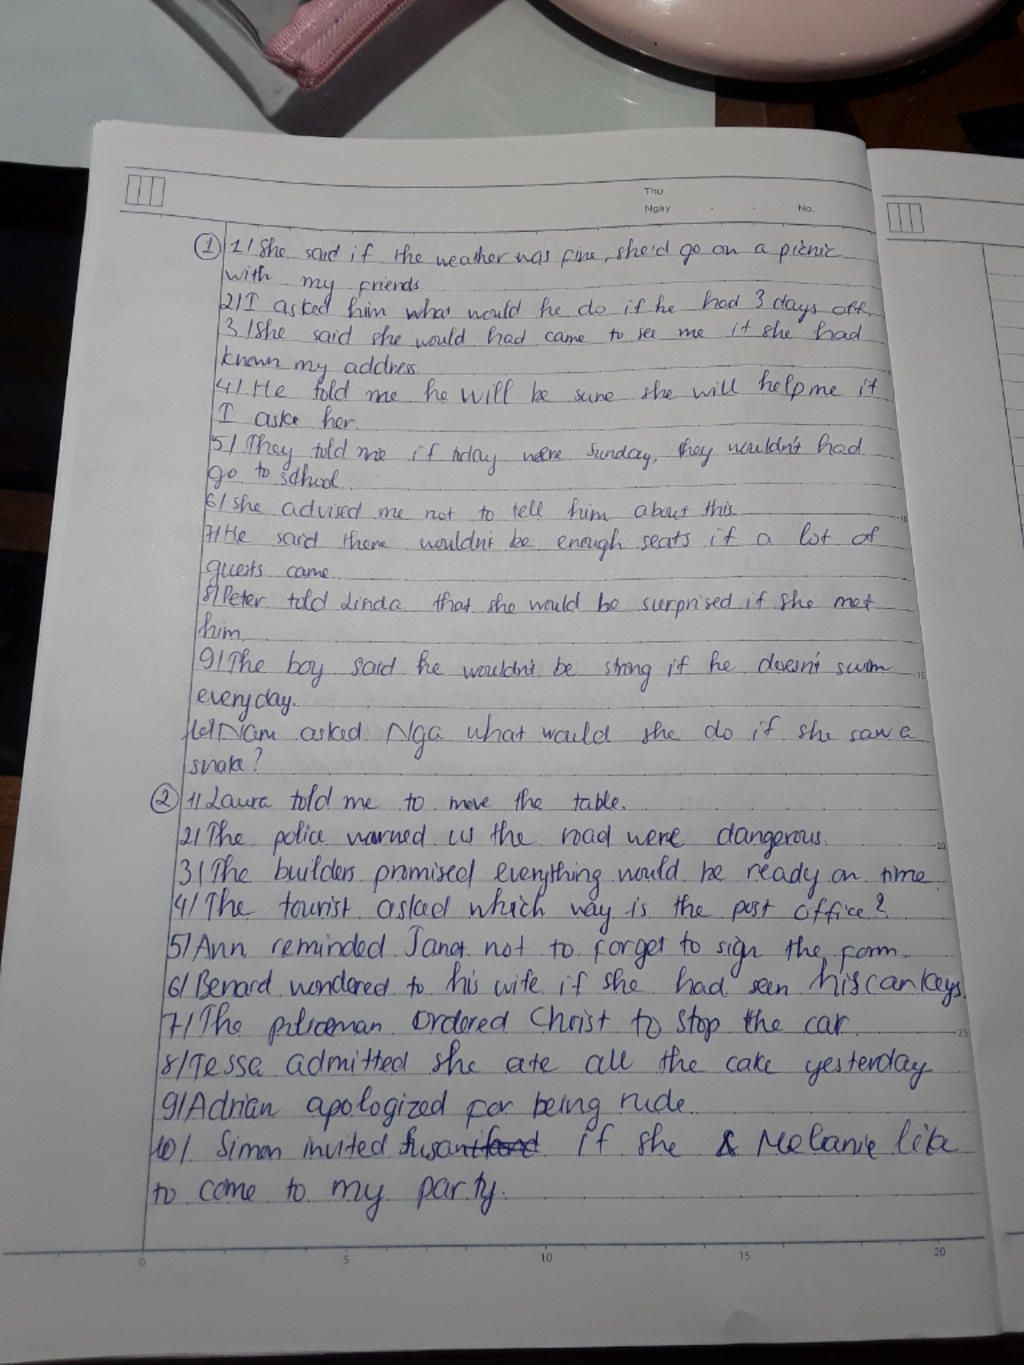 Thứ
Ngày . . No.
① 1/ She said if the weather was fine, she'd go on a picnic
with my friends
2/ I asked him what would he do if he had 3 days off.
3/ She said she would had came to see me if she had
known my address.
4/ He told me he will be sure she will help me if
I aske her.
5/ They told me if today were Sunday, they wouldn't had
go to school.
6/ She advised me not to tell him about this.
7/ He said there wouldn't be enough seats if a lot of
guests came.
8/ Peter told Linda that she would be surprised if she met
him.
9/ The boy said he wouldn't be strong if he doesn't swim
everyday.
10/ Nam asked Nga what would she do if she saw a
snake?
② 1/ Laura told me to move the table.
2/ The police warned us the road were dangerous.
3/ The builders promised everything would be ready on time.
4/ The tourist asked which way is the post office?
5/ Ann reminded Janet not to forget to sign the form.
6/ Benard wondered to his wife if she had seen his car keys.
7/ The policeman ordered Christ to stop the car.
8/ Tessa admitted she ate all the cake yesterday
9/ Adrian apologized for being rude.
10/ Simon invited Susan if she & Melanie like
to come to my party.
0 5 10 15 20
10
15
20
25